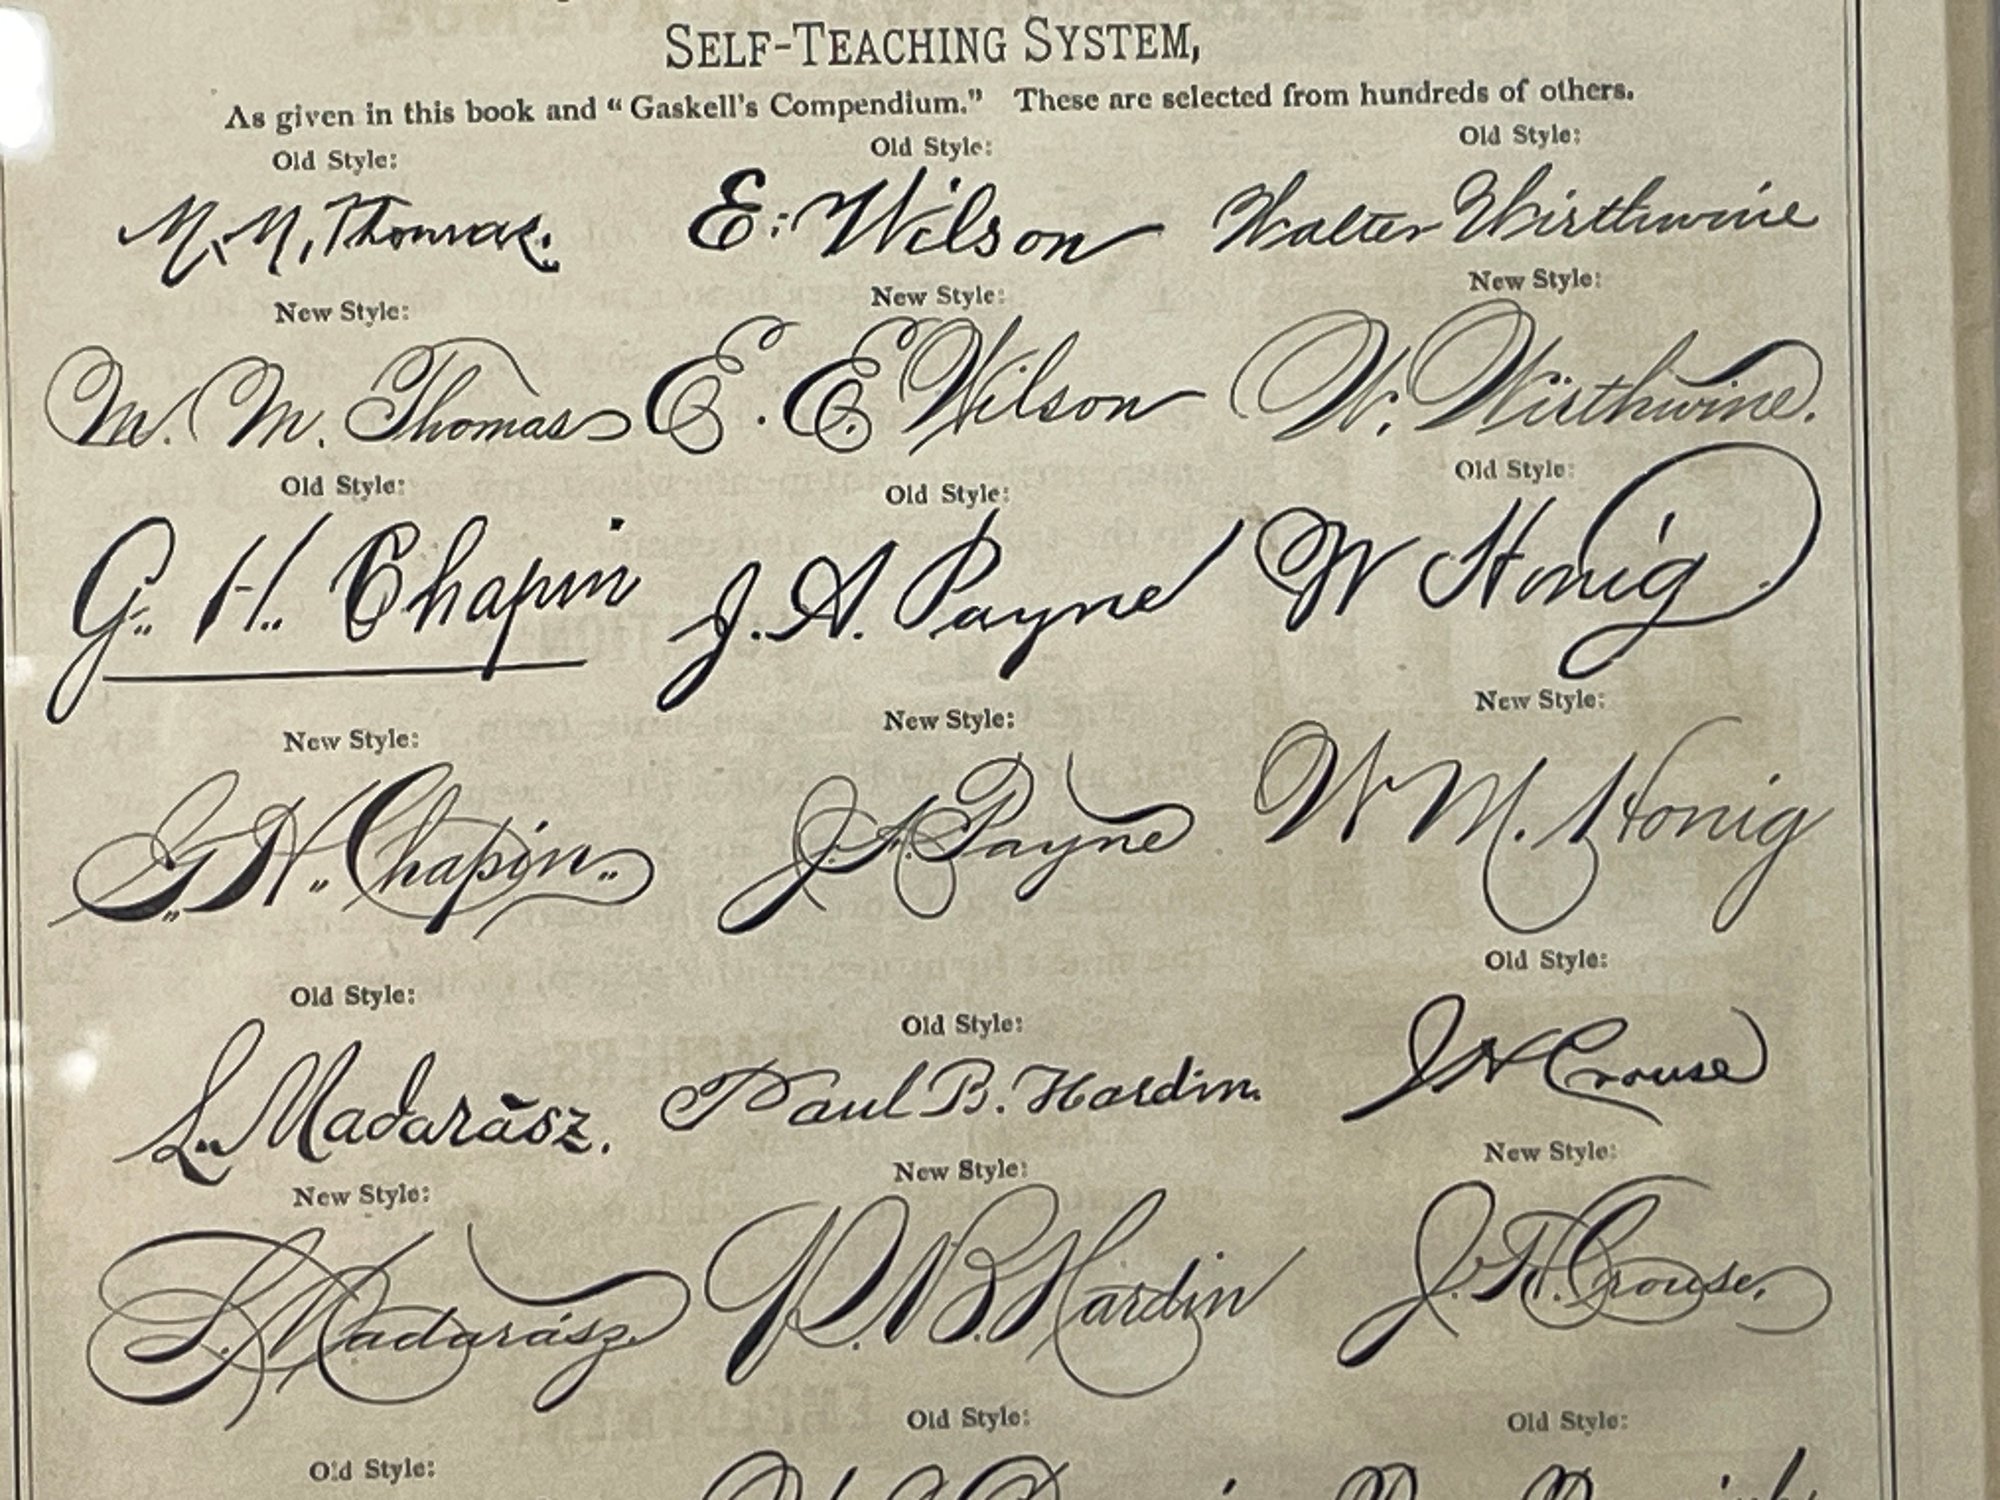 SELF-TEACHING SYSTEM,
As given in this book and "Gaskell's Compendium." These are selected from hundreds of others.
Old Style: Old Style: Old Style:
M. M. Thomas. E. Wilson Walter Wirthwine
New Style: New Style: New Style:
M. M. Thomas E. E. Wilson W. Wirthwine.
Old Style: Old Style: Old Style:
G. H. Chapin J. A. Payne W Honig
New Style: New Style: New Style:
G. H. Chapin. J. A. Payne W M. Honig
Old Style: Old Style: Old Style:
L. Madarász. Paul B. Hardin. J H Crouse
New Style: New Style: New Style:
L. Madarász. P. B. Hardin J. H. Crouse,
Old Style: Old Style: Old Style: